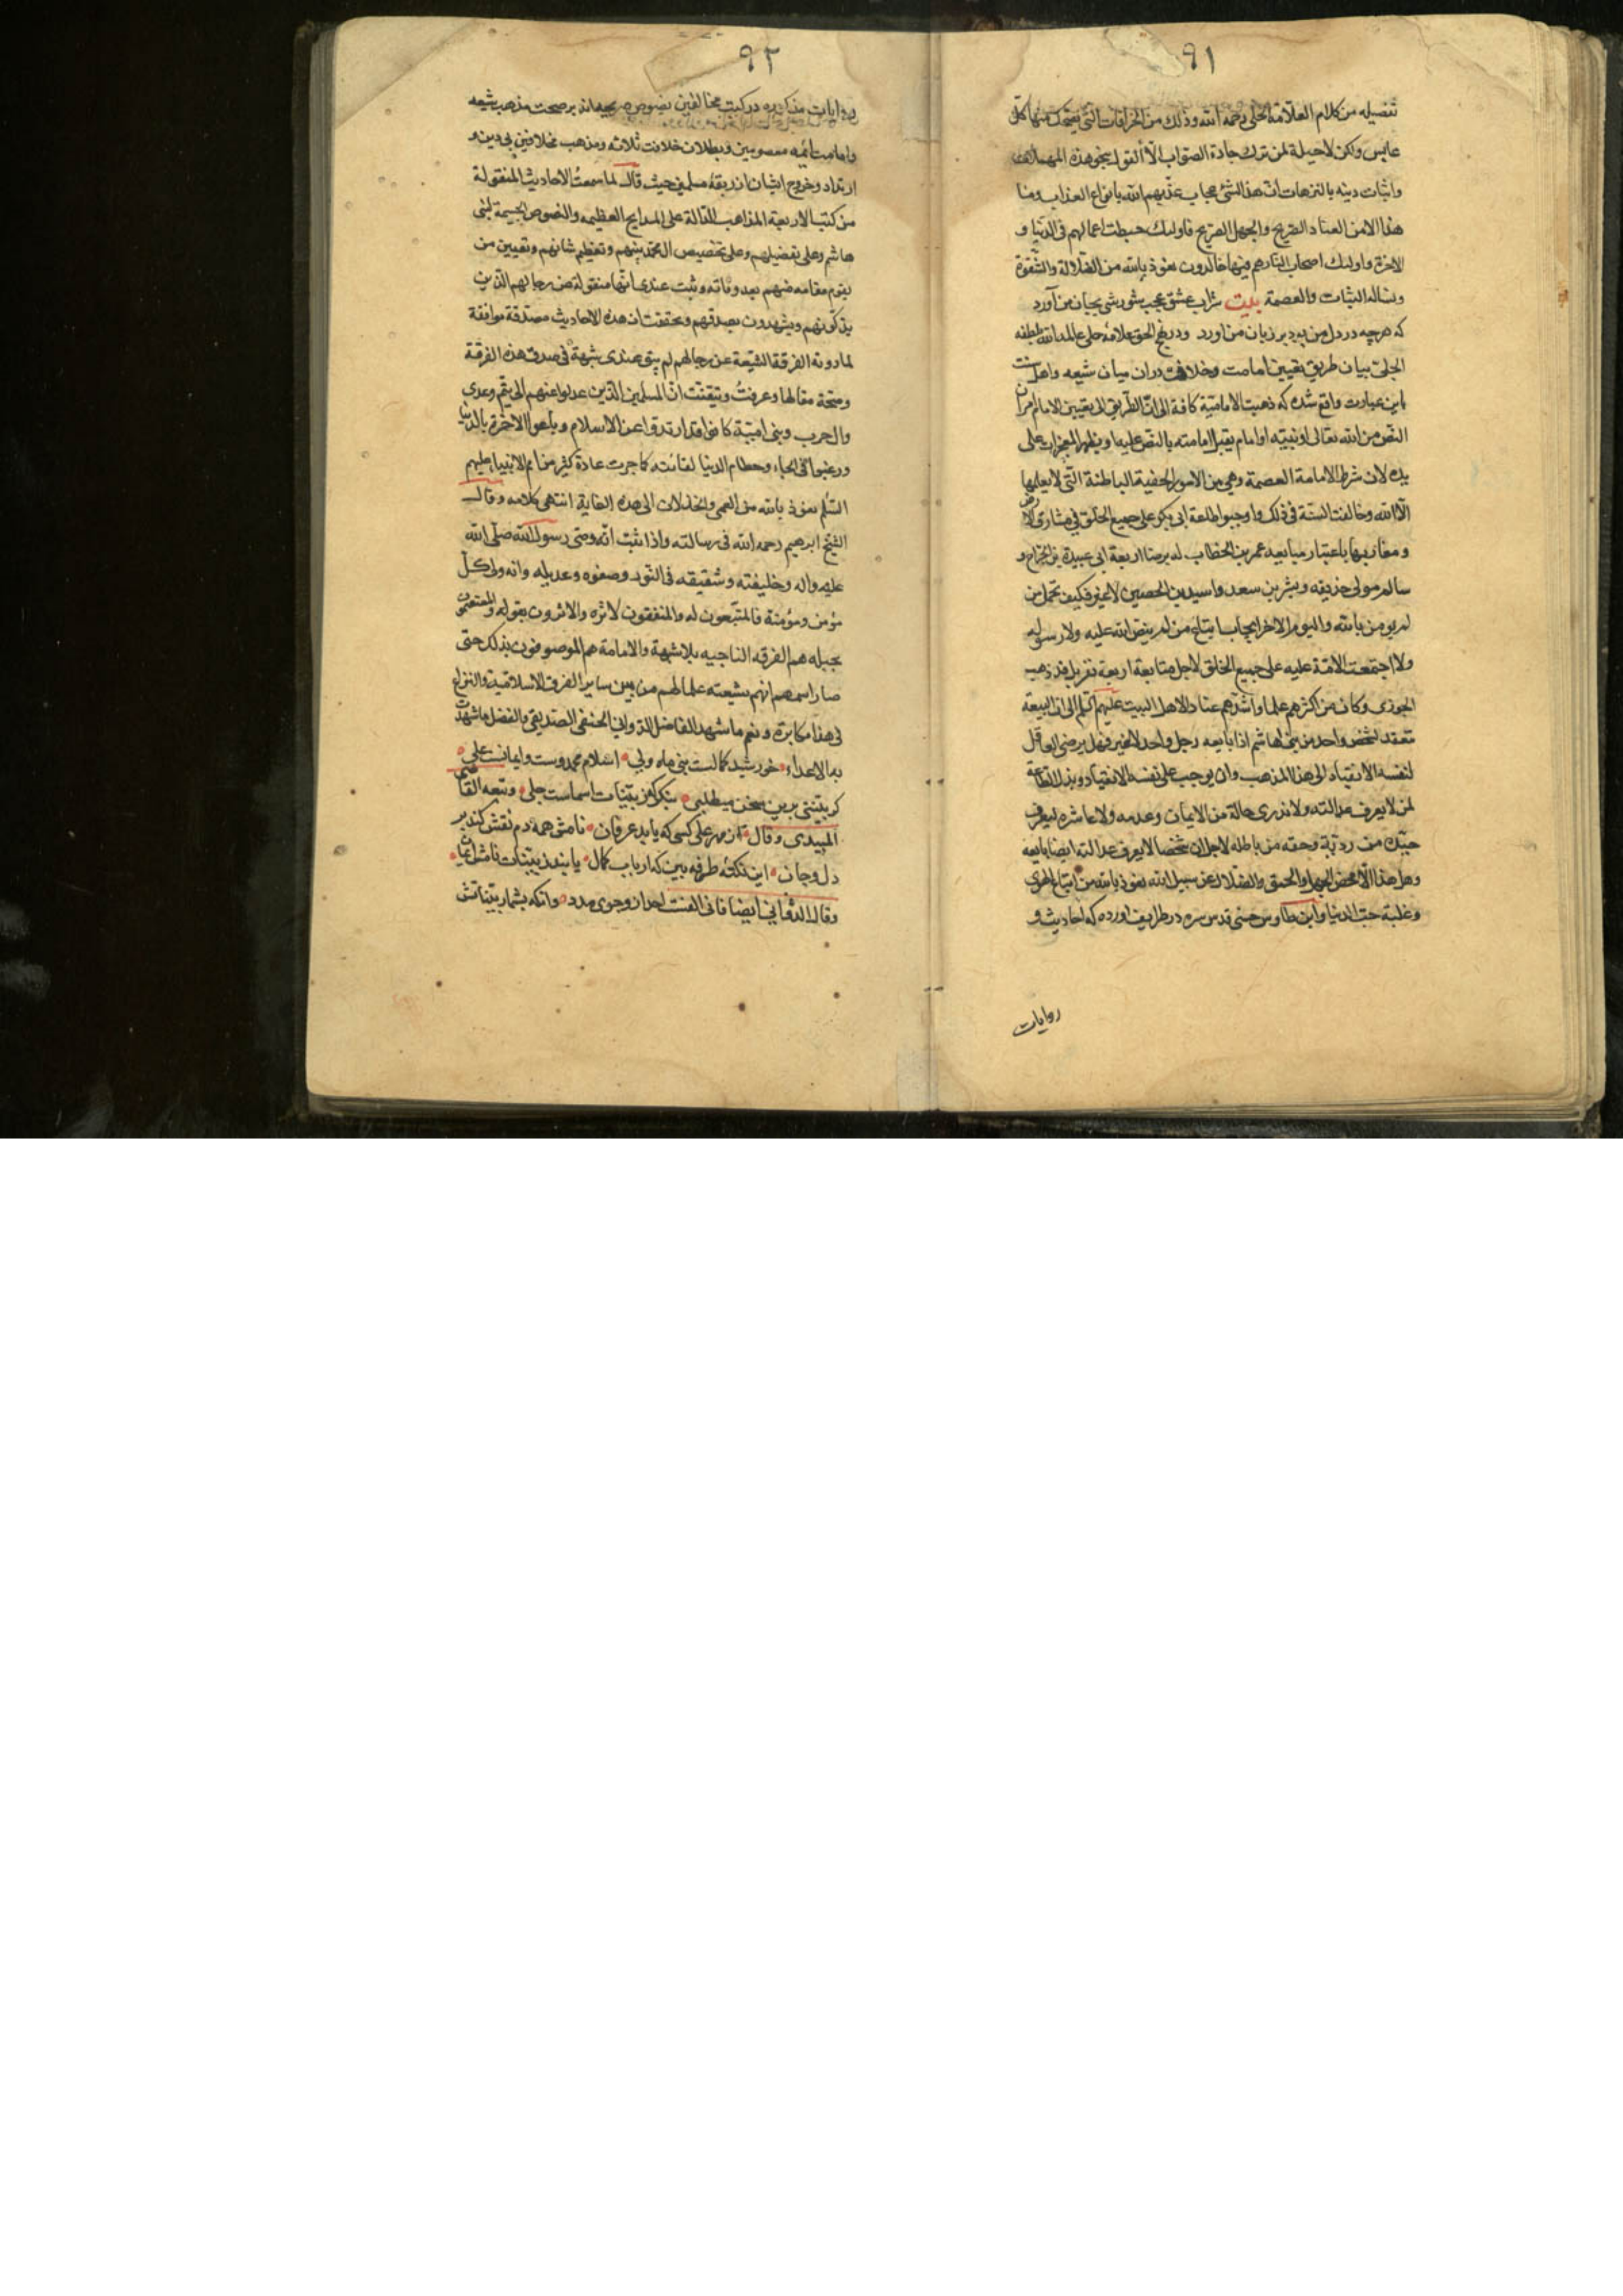 ٩١
تفصيله من كلام العلّامة الحلّي رحمة الله وذلك من الخرافات التي يضحك منها كلّ
عابس ولكن لاحيلة لمن ترك جادة الصواب الّا القول بنحو هذه المهملات
واثبات دينه بالترهات انّ هذا لشئ عجاب عذّبهم الله بانواع العذاب وما
هذا الا من العناد الصّريح والجهل الصّريح فاولئك حبطت اعمالهم فى الدّنيا و
الاخرة واولئك اصحاب النار هم فيها خالدون نعوذ بالله من الضّلالة والشّقوة
ونساله الثبات والعصمة بيت شراب عشق عجب شورشى بجان من آورد
كه هرچه در دل من بود بر زبان من اورد ودر نهج الحق علامه حلى عامله الله بلطفه
الجلى بيان طريق تعيين امامت وخلافت دران ميان شيعه واهل سنت
باين عبارت واقع شده كه ذهبت الامامیّة كافة الى انّ الطّريق الى تعيين الامام امران
النّص من الله تعالى او نبيّه او امام يقبل امامته بالنص عليه او يظهر المعجزات على
يده لان شرط الامامة العصمة وهى من الامور الخفية الباطنة الّتى لايعلمها
الّا الله وخالفت السنة فى ذلك واوجبوا طاعة ابى بكر على جميع الخلق فى مشارق الارض
ومغاربها باعتبار مبايعه عمر بن الخطاب له برضا اربعة ابى عبيدة بن الجراح و
سالم مولى حذيفه وبشر بن سعد واسيد بن الحصين لاغير فكيف تحمل من
لم يومن بالله واليوم الاخر ايجاب اتباع من لم ينص الله عليه ولا رسوله
ولا اجتمعت الامّة عليه على جميع الخلق لاجل متابعة اربعة نفر بل قد ذهب
الجوزى وكان من اكثرهم علما واشدّهم عنادا لاهل البيت عليهم السّلم الى ان البيعة
تنعقد لشخص واحد من بنى هاشم اذا بايعه رجل واحد لاغير فهل يرضى العاقل
لنفسه الانقياد الى هذا المذهب وان يوجب على نفسه الانقياد وبذل الطّاعة
لمن لايعرف عدالته ولا ندرى حاله من الايمان وعدمه ولا عاشره ليعرف
جيّده من رديّه وحقه من باطله لاجل ان شخصا لايعرف عدالته ايضا بايعه
وهل هذا الّا محض الجهل والحمق والضلال عن سبيل الله نعوذ بالله من اتباع الهوى
وغلبة حب الدنيا وابن طاوس حسنى قدس سره در طرايف اورده كه احاديث و
روايات
٩٢
روايات مذكوره در كتب مخالفين نصوص صريحه‌اند بر صحت مذهب شيعه
وامامت ائمه معصومين وبطلان خلافت ثلاثه ومذهب مخالفين بى دين و
ارتداد وخروج ايشان از ربقهٔ مسلمين حيث قال لما سمعتُ الاحاديث المنقولة
من كتب الاربعة المذاهب الدّالة على المدايح العظيمه والنصوص الجسيمة لبنى
هاشم وعلى تفضيلهم وعلى تخصيص ال محمد بينهم وتعظيم شانهم وتعيين من
يقوم مقامه منهم بعد وفاته وثبت عندى انّها منقولة عن رجالهم الّذين
يزكّونهم ويشهدون بصدقهم وتحققت ان هذه الاحاديث مصدّقة موافقة
لما روته الفرقة الشّيعة عن رجالهم لم يبق عندى شبهة فى صدق هذه الفرقة
وصحّة مقالها وعرفتُ وتيقّنت انّ المسلمين الّذين عدلوا عنهم الى تيم وعدى
وال حرب وبنى اميّة كانوا قد ارتدوا عن الاسلام وباعوا الاخرة بالدّنيا
ورغبوا فى الجاه وحطام الدنيا لفانته كما جرت عادة كثير من امم الانبياء عليهم
السّلم نعوذ بالله من العمى والخذلان الى هذه الغاية انتهى كلامه وقال
الشّيخ ابرهيم رحمه الله فى رسالته واذا ثبت انّه وصّى رسول الله صلّى الله
عليه واله وخليفته وشقيقه فى النّور وصفوه وعديله وانه ولى كلّ
مؤمن ومؤمنة فالمتّبعون له والمنفقون لاثره والاثرون بقوله والمعتصمون
بحبله هم الفرقه الناجيه بلا شبهة والامامة هم الموصوفون بذلك حتّى
صار اسمهم انهم شيعته علما لهم من بين ساير الفرق الاسلاميّة والنزاع
فى هذا مكابرة ونعم ما شهد الفاضل الدّوانى الحنفى الصديقى والفضل ما شهدت
به الاعداء خورشيد كمالست نبى ماه ولى اسلام محمدست وايمان على
كر بيّنتى برين سخن ميطلبى بنگر كه ز بيّنات اسماست جلى وتبعه القاضى
المیبدی وقال از مهر على كسى كه يابد عرفان نامش همه دم نقش كند بر
دل وجان اين نكتهٔ طرفه بين كه ارباب كمال يابند ز بيّنات نامش ايمان
وقال الدّوانى ايضا فانى الفت احد از وجوى مدد وانكه بشمار بيّناتش